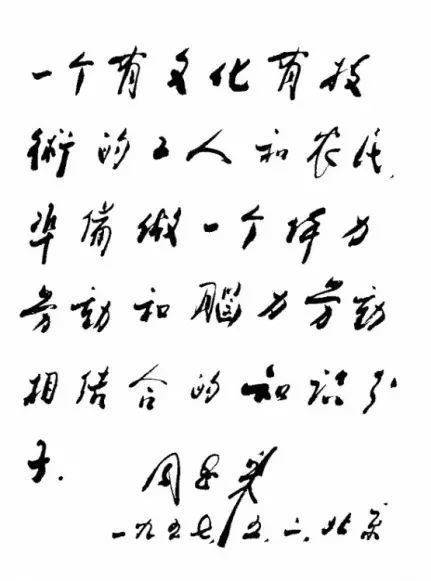 一个有文化有技
術的工人和农民，
準備做一个体力
劳动和腦力劳动
相结合的知識分
子．
周恩来
一九五七，五．二．北京